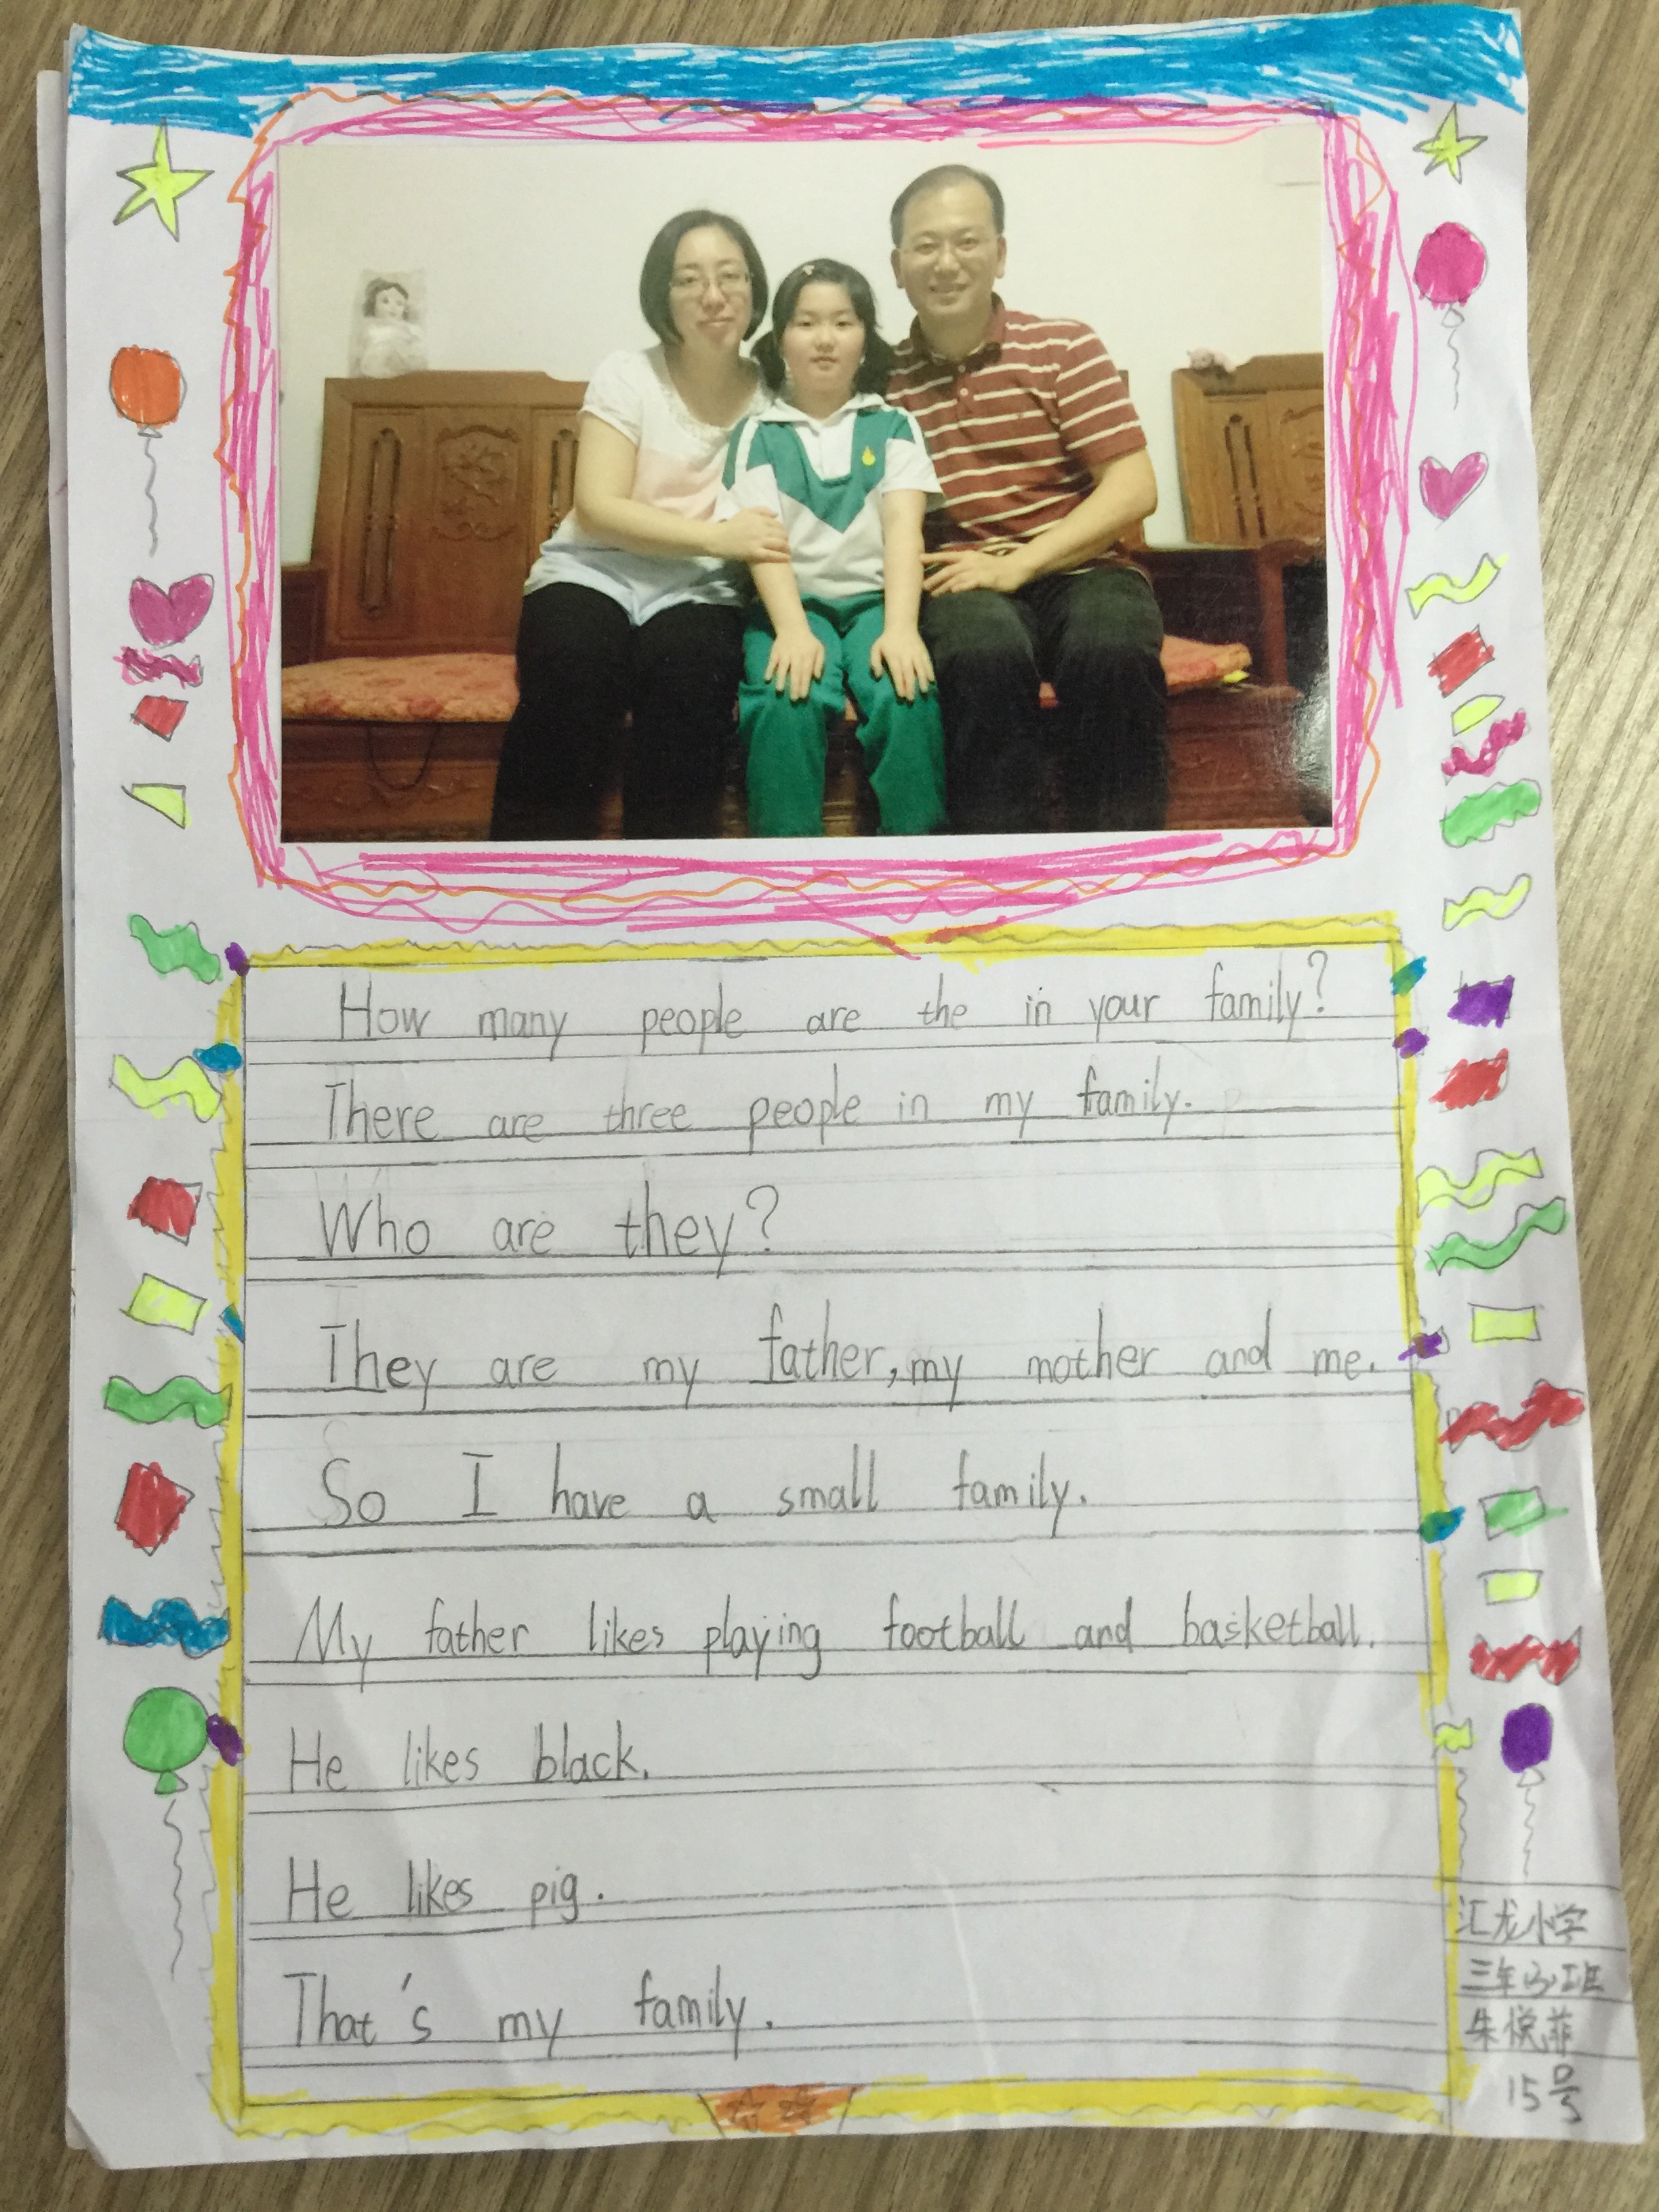 How many people are the in your family?
There are three people in my family.
Who are they?
They are my father, my mother and me.
So I have a small family.
My father likes playing football and basketball.
He likes black.
He likes pig.
That's my family.
汇龙小学
三年(3)班
朱悦菲
15号